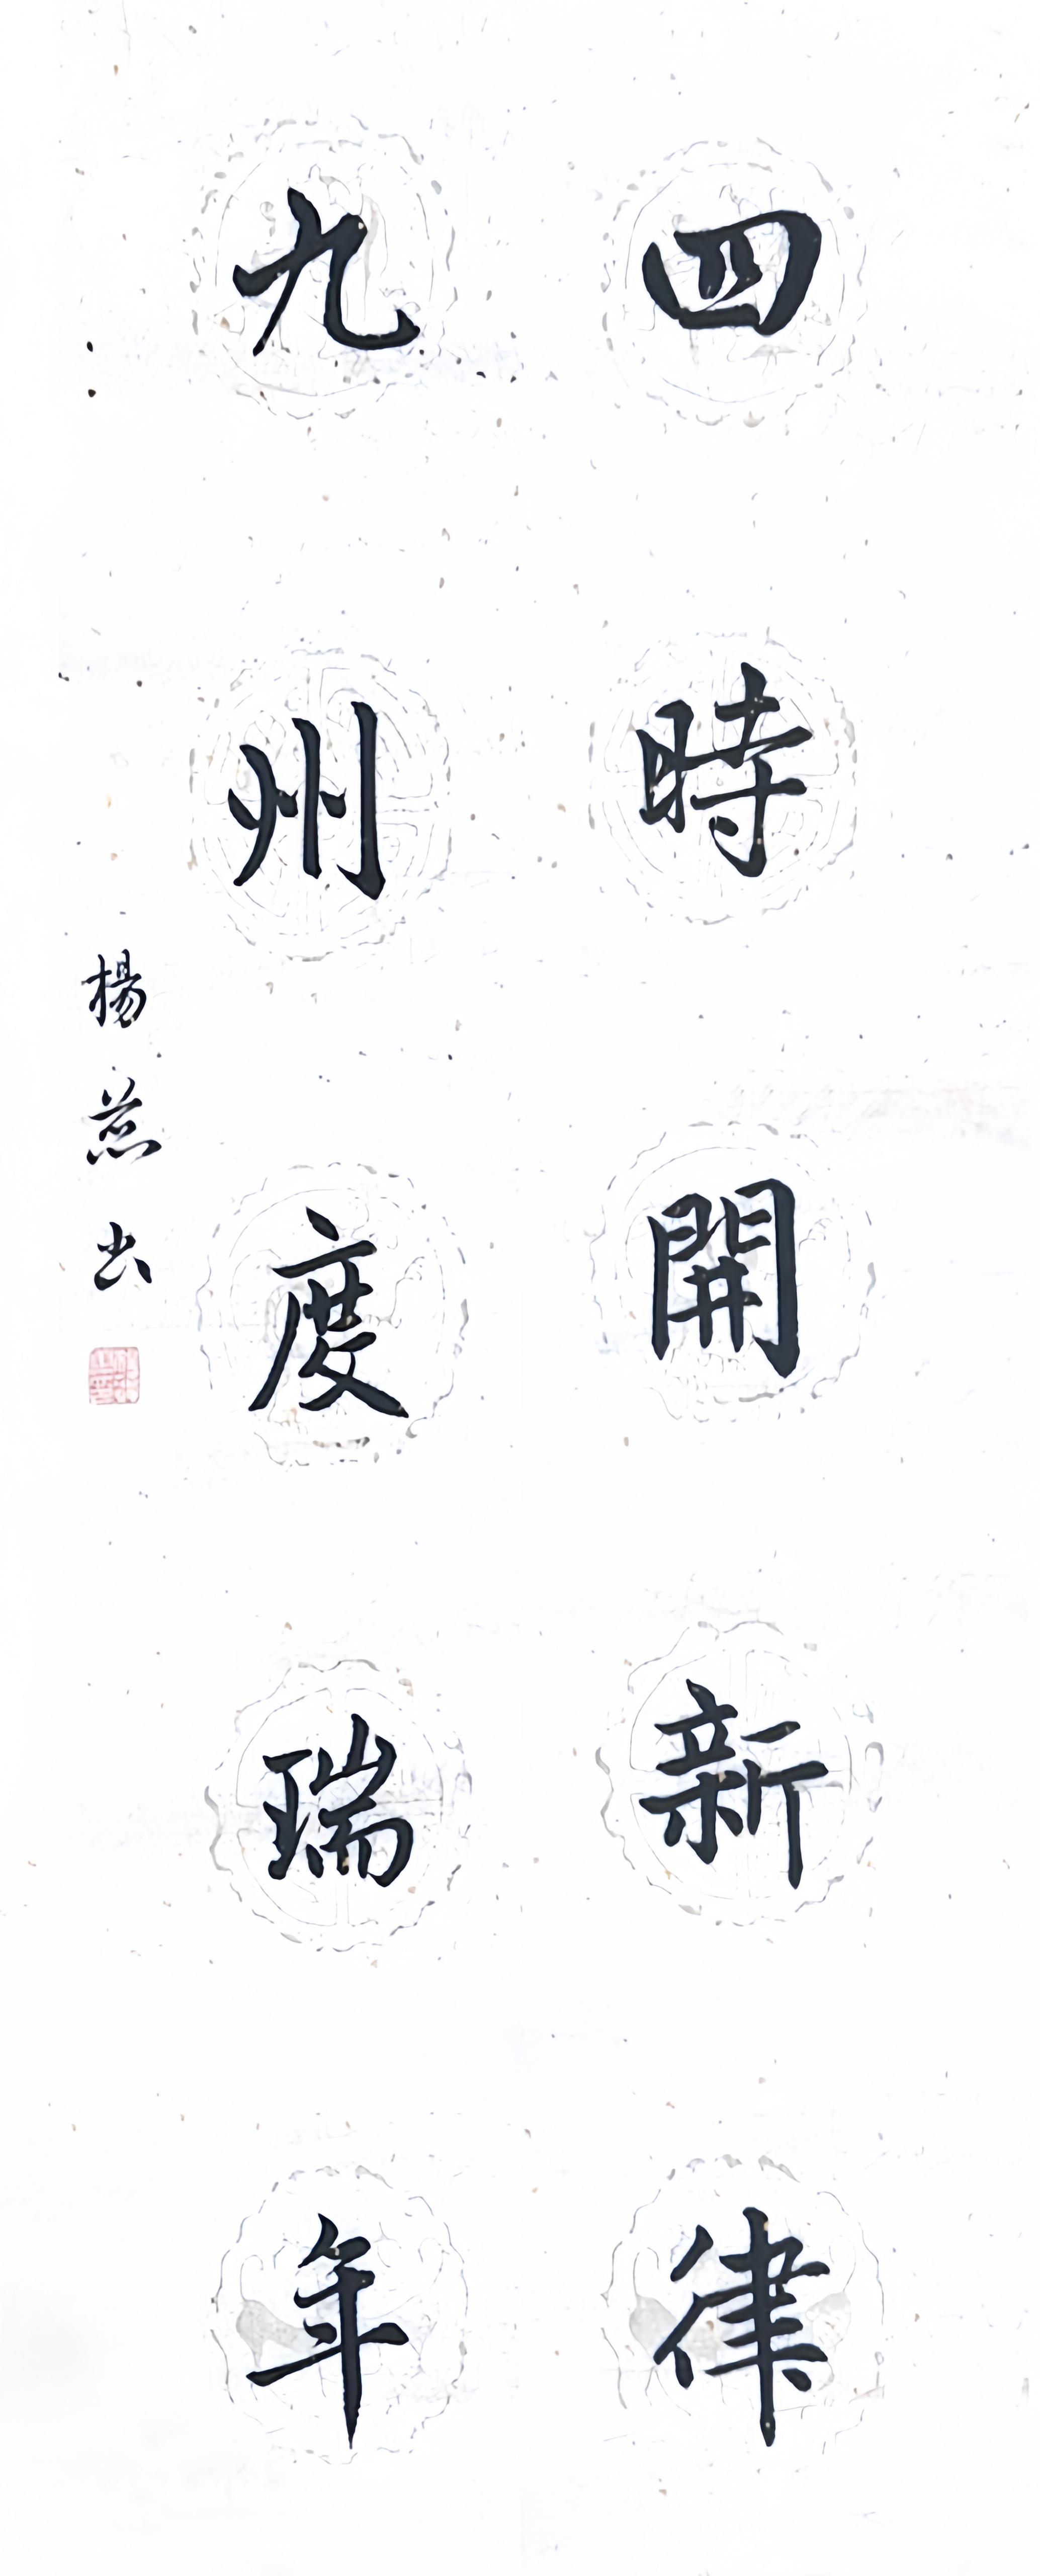 四時開新律
九州度瑞年
楊燕出